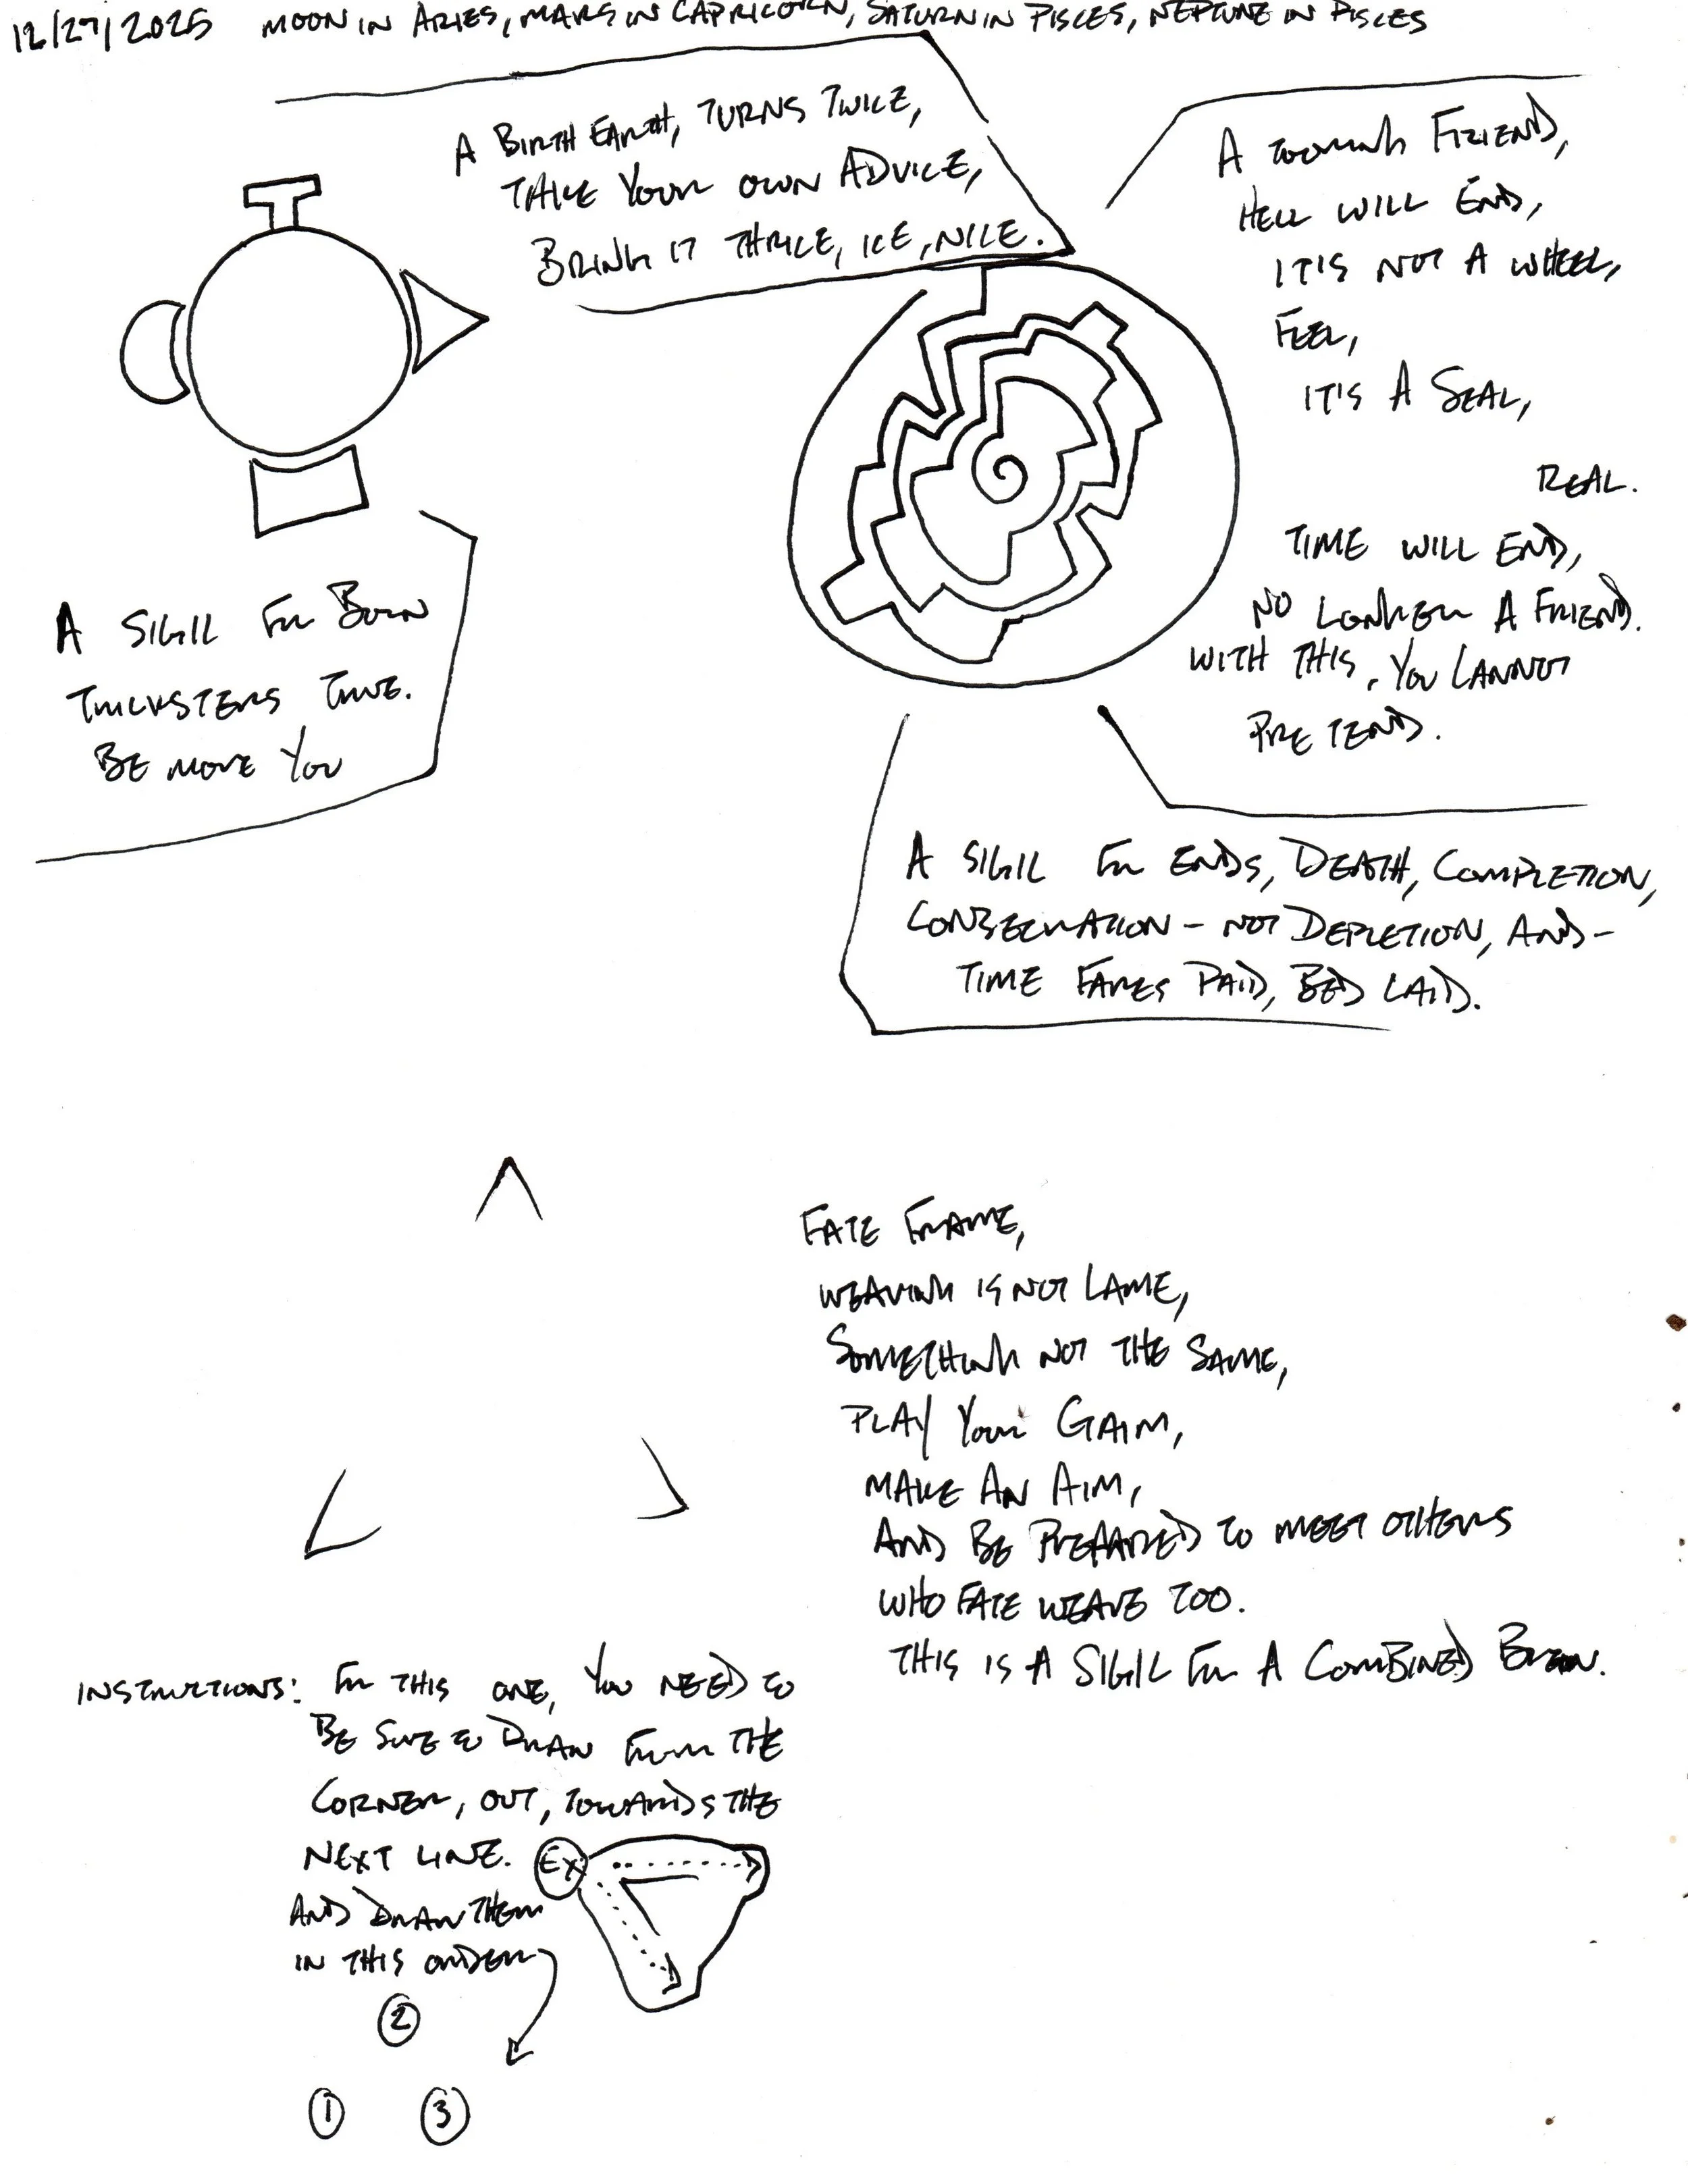 12/27/2025 MOON IN ARIES, MARS IN CAPRICORN, SATURN IN PISCES, NEPTUNE IN PISCES
A BIRTH EARTH, TURNS TWICE,
TAKE YOUR OWN ADVICE,
BRING IT THRICE, ICE, NICE.
A FRIEND,
HELL WILL END,
IT'S NOT A WHEEL,
FEEL,
IT'S A SEAL,
REAL.
TIME WILL END,
NO LONGER A FRIEND.
WITH THIS, YOU CANNOT
PRETEND.
A SIGIL FOR BORN
TRICKSTERS TRUE.
BE MORE YOU
A SIGIL FOR ENDS, DEATH, COMPLETION,
CONSECRATION - NOT DEPLETION, AND -
TIME FARES PAID, BED LAID.
FATE FRAME,
WEAVING IS NOT LAME,
SOMETHING NOT THE SAME,
PLAY YOUR GAIM,
MAKE AN AIM,
AND BE PREPARED TO MEET OTHERS
WHO FATE WEAVE TOO.
THIS IS A SIGIL FOR A COMBINED
INSTRUCTIONS: FOR THIS ONE, YOU NEED TO
BE SURE TO DRAW FROM THE
CORNER, OUT, TOWARDS THE
NEXT LINE.
EX
AND DRAW THEM
IN THIS ORDER
2
1 3